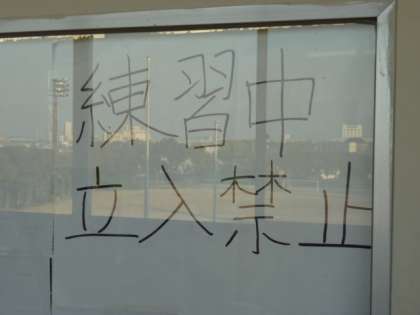 練習中
立入禁止